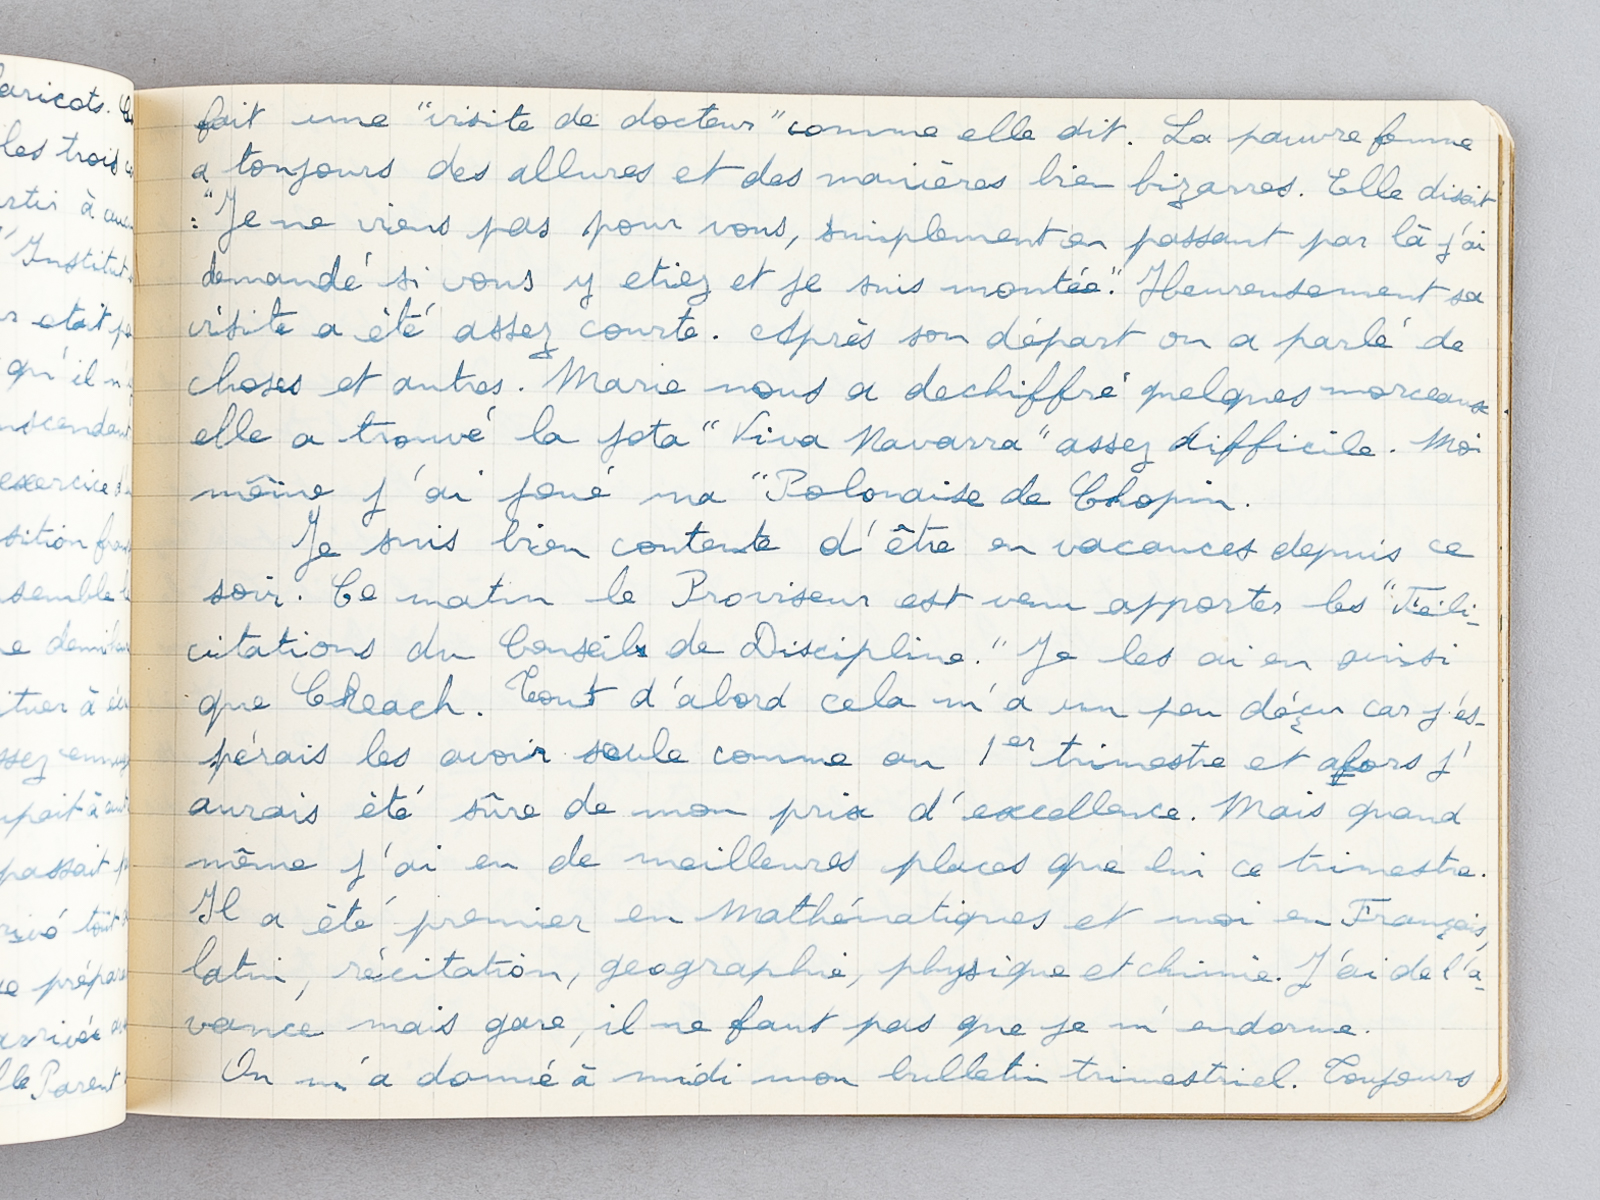 aricots.
les trois
rtir à aucu
"Institut
r etait pa
qu'il n'y
nscendant
exercice d
sition fran
semble l
ne demi
ituer à éc
ssez ennuy
upait à aut
passait p
rrivé tôt
ue prépara
arrivée au
lle Parent
fait une "visite de docteur" comme elle dit. La pauvre femme
a toujours des allures et des manières bien bizarres. Elle disait
: "Je ne viens pas pour vous, simplement en passant par là j'ai
demandé si vous y etiez et je suis montée". Heureusement sa
visite a été assez courte. Après son départ on a parlé de
choses et autres. Marie nous a dechiffré quelques morceaux.
elle a trouvé la jota "Viva Navarra" assez difficile. Moi
même j'ai joué ma "Polonaise de Chopin.
Je suis bien contente d'être en vacances depuis ce
soir. Ce matin le Proviseur est venu apporter les "Féli-
citations du Conseil de Discipline." Je les ai eu ainsi
que Cheach. Tout d'abord cela m'a un peu déçu car j'es-
pérais les avoir seule comme au 1er trimestre et alors j'
aurais été sûre de mon prix d'excellence. Mais quand
même j'ai eu de meilleures places que lui ce trimestre.
Il a été premier en Mathématiques et moi en Français,
latin, récitation, geographie, physique et chimie. J'ai de l'a-
vance mais gare, il ne faut pas que je m'endorme.
On m'a donné à midi mon bulletin trimestriel. Toujours